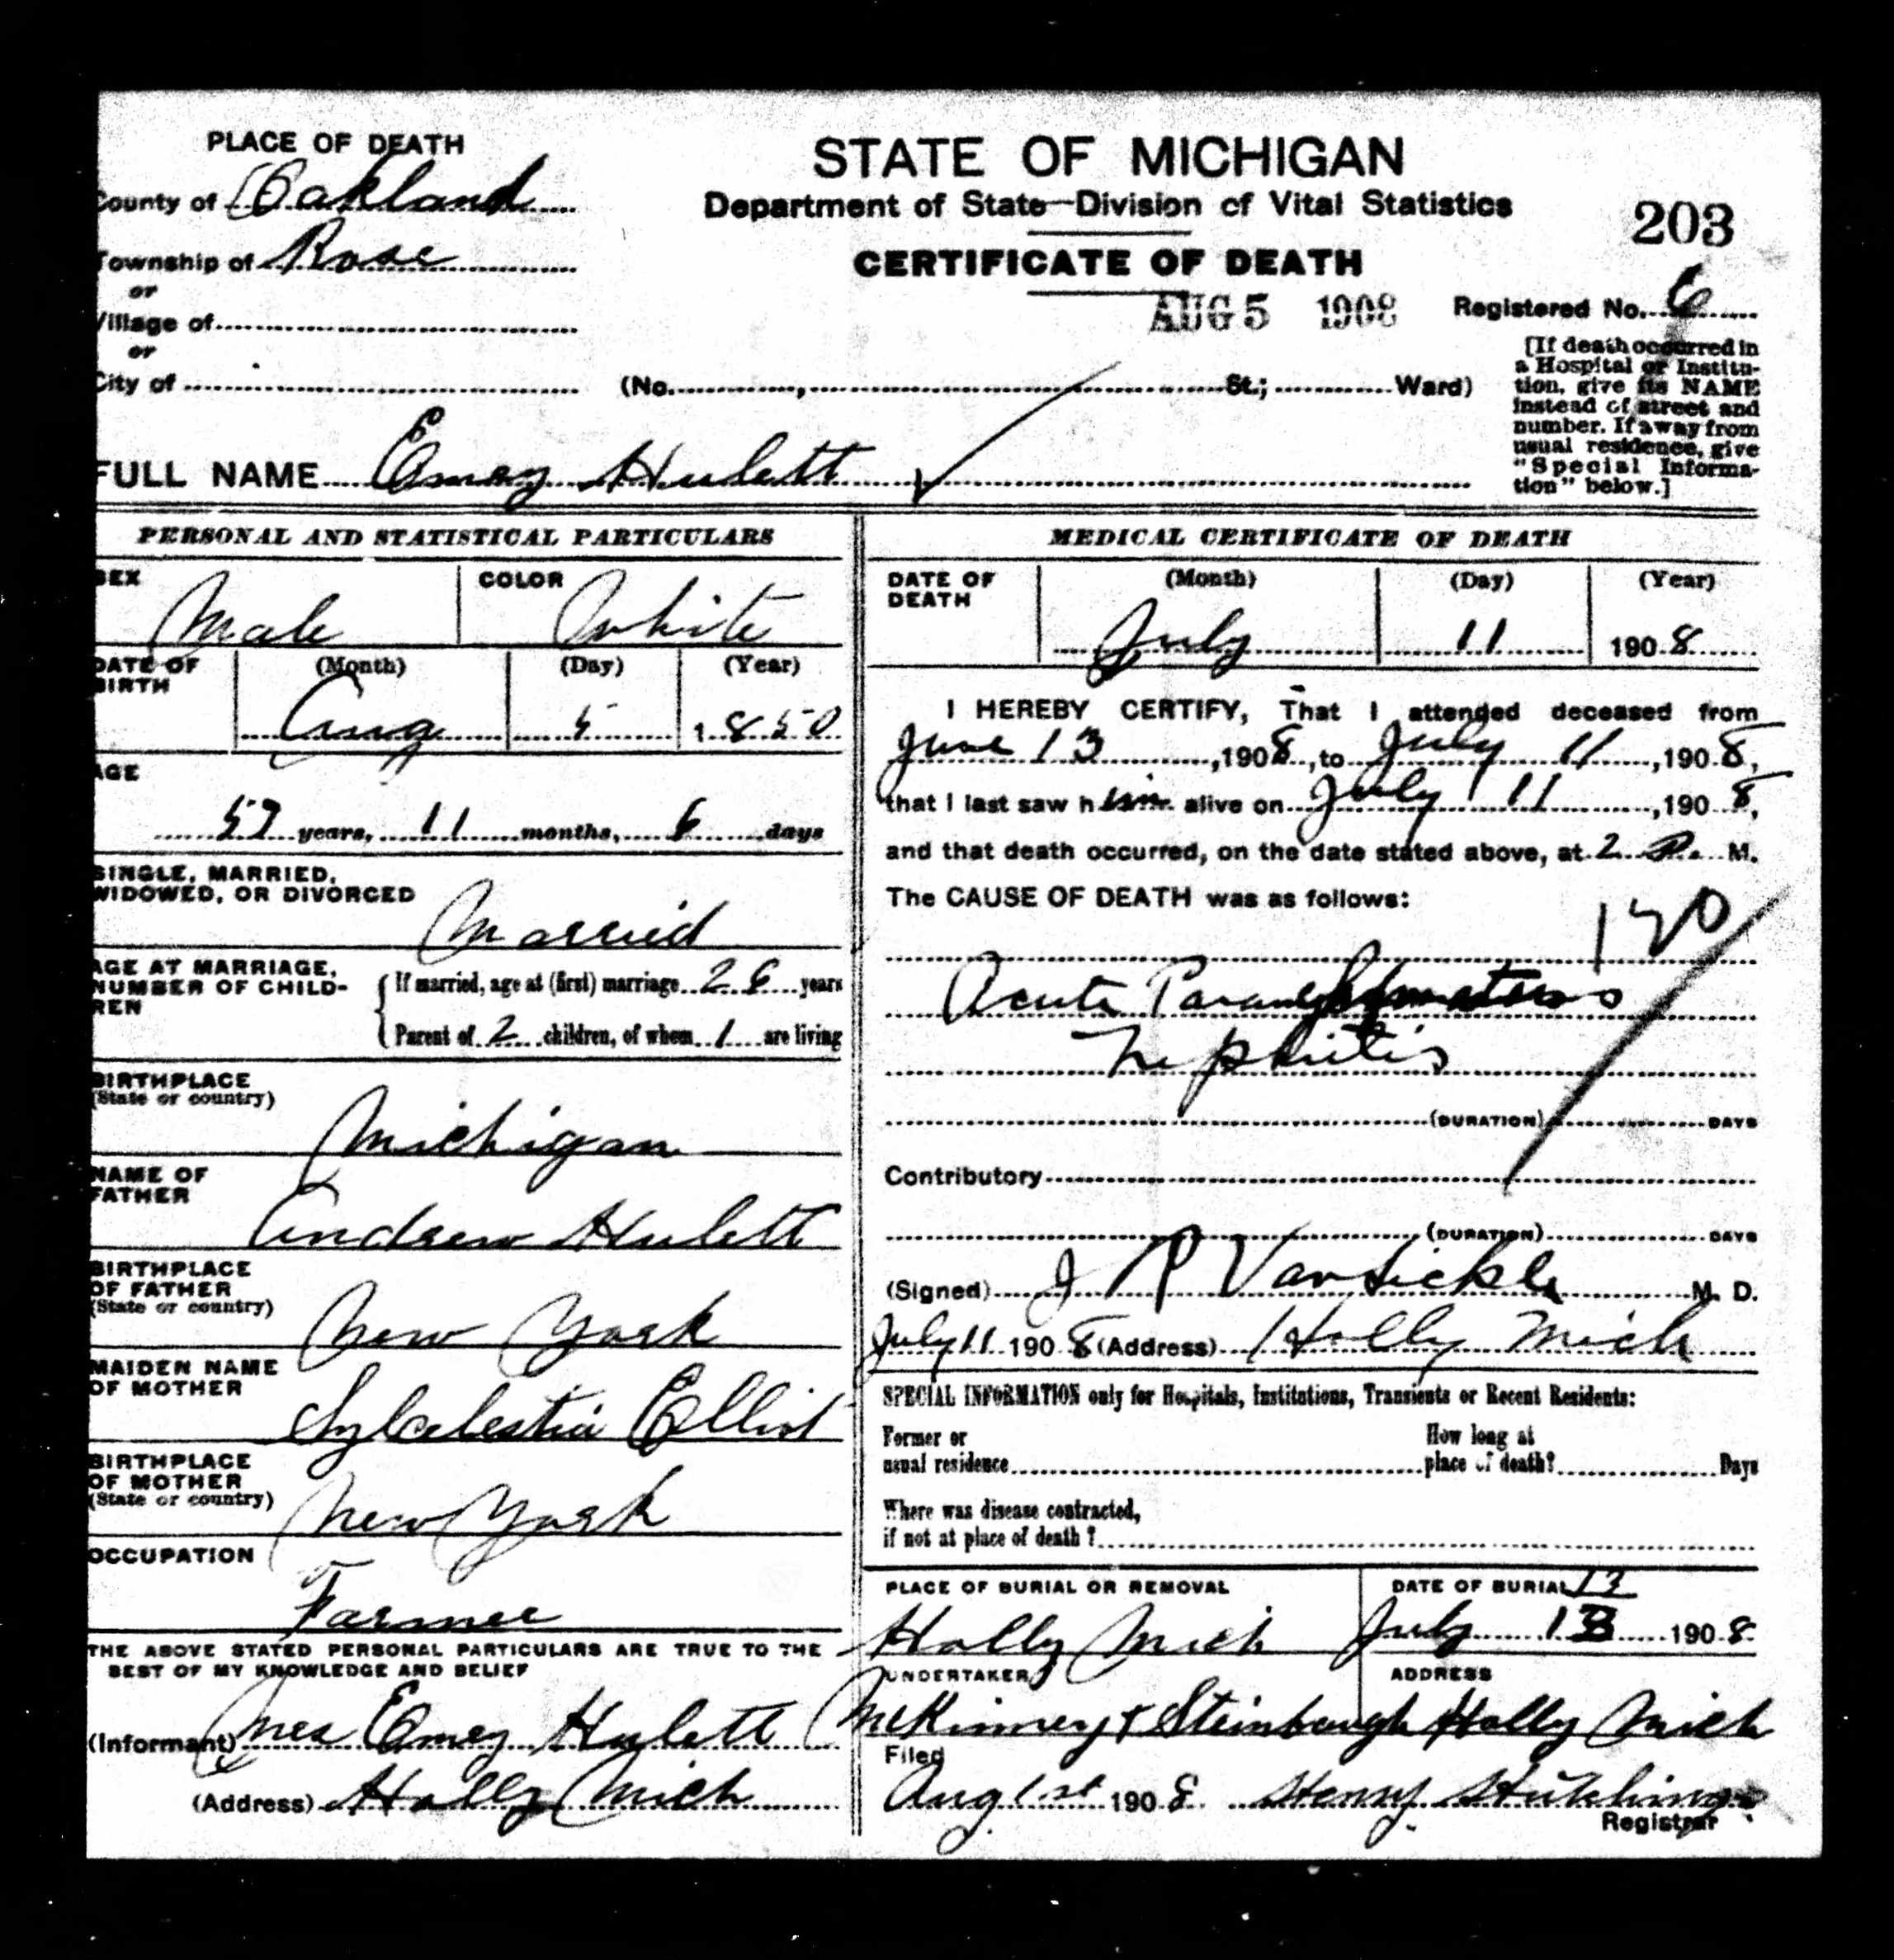 PLACE OF DEATH
County of Oakland
Township of Rose
or
Village of
or
City of
STATE OF MICHIGAN
Department of State—Division of Vital Statistics
CERTIFICATE OF DEATH
203
AUG 5 1908
Registered No. 6
(No. , St.; Ward)
[If death occurred in
a Hospital or Institu-
tion, give its NAME
instead of street and
number. If away from
usual residence, give
"Special Informa-
tion" below.]
FULL NAME Emez Hulett
PERSONAL AND STATISTICAL PARTICULARS
SEX Male
COLOR White
DATE OF BIRTH
(Month) (Day) (Year)
Aug 5 1850
AGE
57 years, 11 months, 6 days
SINGLE, MARRIED,
WIDOWED, OR DIVORCED
Married
AGE AT MARRIAGE,
NUMBER OF CHILD-
REN
If married, age at (first) marriage 26 years
Parent of 2 children, of whom 1 are living
BIRTHPLACE
(State or country)
Michigan
NAME OF
FATHER
Andrew Hulett
BIRTHPLACE
OF FATHER
(State or country)
New York
MAIDEN NAME
OF MOTHER
Sylcelestia Elliot
BIRTHPLACE
OF MOTHER
(State or country)
New York
OCCUPATION
Farmer
THE ABOVE STATED PERSONAL PARTICULARS ARE TRUE TO THE
BEST OF MY KNOWLEDGE AND BELIEF
(Informant) Mrs Emez Hulett
(Address) Holly Mich
MEDICAL CERTIFICATE OF DEATH
DATE OF
DEATH
(Month) (Day) (Year)
July 11 1908
I HEREBY CERTIFY, That I attended deceased from
June 13, 1908, to July 11, 1908,
that I last saw him alive on July 11, 1908,
and that death occurred, on the date stated above, at 2 P. M.
The CAUSE OF DEATH was as follows:
120
Acute
Nephritis
(DURATION) DAYS
Contributory
(DURATION) DAYS
(Signed) J P VanSickle M. D.
July 11 1908 (Address) Holly Mich
SPECIAL INFORMATION only for Hospitals, Institutions, Transients or Recent Residents:
Former or
usual residence
How long at
place of death? Days
Where was disease contracted,
if not at place of death?
PLACE OF BURIAL OR REMOVAL
Holly Mich
DATE OF BURIAL 13
July 13 1908
UNDERTAKER
ADDRESS
McKinney & Steinbaugh Holly Mich
Filed
Aug 1st 1908 Henry Hutchings
Registrar